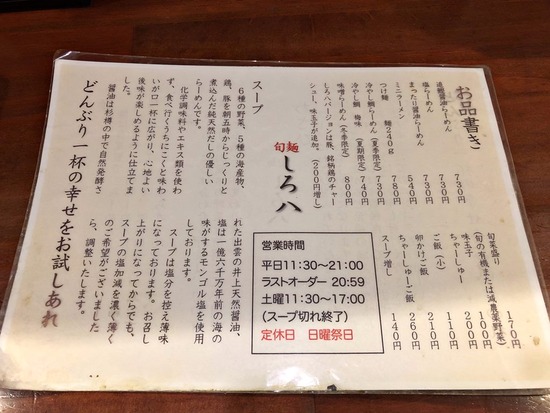 お品書き
追鰹醤油らーめん 730円
塩らーめん 730円
まったり醤油らーめん 730円
ミニラーメン 540円
つけ麺 麺240g 780円
冷やし鯛らーめん(夏季限定) 730円
冷やし麺 梅味 (夏期限定) 740円
味噌らーめん(冬季限定) 800円
しろハバージョンは豚、銘柄鶏のチャー
シュー、味玉子が追加。(200円増し)
旬菜盛り 170円
(旬の有機または減農薬野菜)
味玉子 100円
ちゃーしゅー 200円
ご飯(小) 110円
卵かけご飯 210円
ちゃーしゅーご飯 260円
スープ増し 140円
旬麺 しろ八
営業時間
平日11:30~21:00
ラストオーダー 20:59
土曜11:30~17:00
(スープ切れ終了)
定休日 日曜祭日
スープ
6種の野菜、5種の海産物、
鶏、豚を朝五時からじっくりと
煮込んだ純天然だしの優しい
らーめんです。
化学調味料やエキス類を使わ
ず、食べ行くうちにこくと味わ
いが口一杯に広がり、心地よい
後味が楽しめるように仕立てま
した。
醤油は杉樽の中で自然発酵さ
れた出雲の井上天然醤油、
塩は一億六千万年前の海の
味がするモンゴル塩を使用
しております。
スープは塩分を控え薄味
になっております。お召し
上がりになってからでも、
スープの塩加減を濃く薄く
のご希望がございました
ら、調整いたします。
どんぶり一杯の幸せをお試しあれ